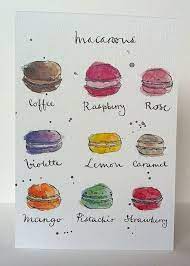 macarons
Coffee Raspberry Rose
Violette Lemon Caramel
Mango Pistachio Strawberry